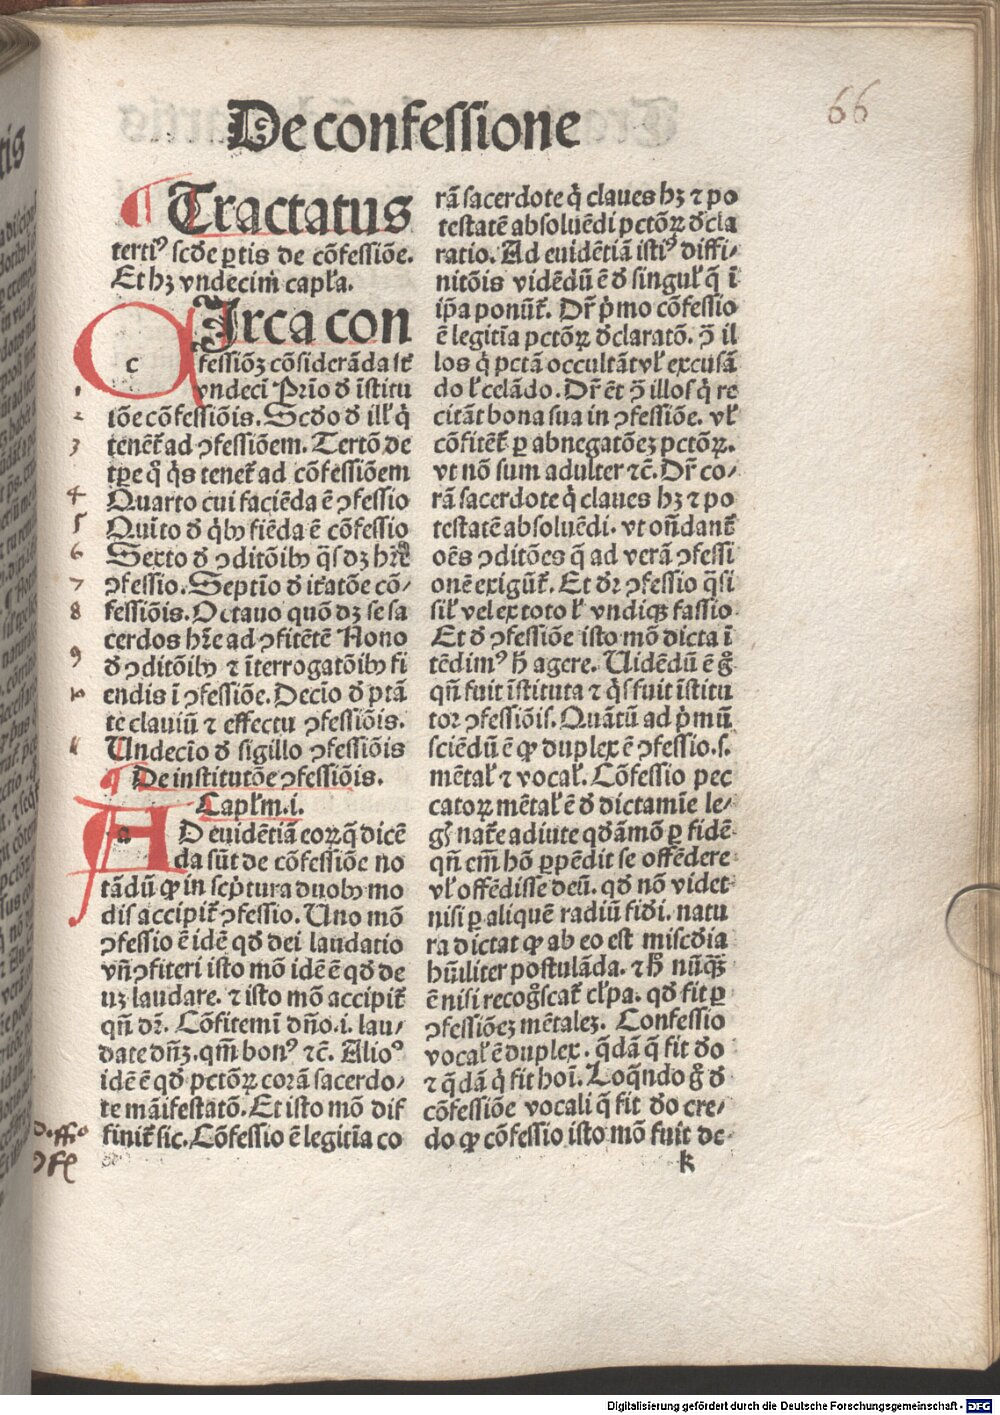 66
De confessione
¶ Tractatus
tertiꝰ scðe ꝑtis de cōfessiōe.
Et hꝫ vndecim capl'a.
CIrca con
c
fessiōꝫ cōsiderāda st̄
vndecī Prīo ð īstitu
tōe cōfessiōis. Scðo ð ill' q̇
tenēt̄ ad ꝯfessiōem. Tertō de
tꝑe q̊ q̇s tenet̄ ad cōfessiōem
Quarto cui faciēda ē ꝯfessio
Quīto ð q̇bꝫ fiēda ē cōfessio
Sexto ð ꝯditōibꝫ q̄s dꝫ hr̄e
ꝯfessio. Septīo ð it̄atōe cō⸗
fessiōis. Octauo quō dꝫ se sa
cerdos hr̄e ad ꝯfitētē Nono
ð ꝯditōibꝫ ⁊ īterrogatōibꝫ fi
endis ī ꝯfessiōe. Decīo ð ptā
te clauiū ⁊ effectu ꝯfessiōis.
Undecīo ð sigillo ꝯfessiōis
1
2
3
4
5
6
7
8
9
10
11
¶ De institutōe ꝯfessiōis.
Capl'm .i.
a
AD euidētiā eoꝝ q̄ dicē
da sūt de cōfessiōe no
tādū ꝙ in sc̣ptura duobꝫ mo
dis accipit̄ ꝯfessio. Uno mō
ꝯfessio ē idē qð dei laudatio
vn̄ ꝯfiteri isto mō idē ē qð de
uꝫ laudare. ⁊ isto mō accipit̄
qn̄ dr̄. Cōfitemī dn̄o .i. lau⸗
date dn̄ꝫ. qm̄ bonꝰ ⁊c̄. Alioꝰ
idē ē qð pctōꝝ corā sacerdo⸗
te māifestatō. Et isto mō dif
finit̄ sic. Cōfessio ē legitīa co
Diffio
ꝯfess
rā sacerdote q̇ claues hꝫ ⁊ po
testatē absoluēdi pctōꝝ ðcla
ratio. Ad euidētiā istiꝰ diffi⸗
nitōis vidēdū ē ð singul' q̄ ī
ip̄a ponūt̄. Dr̄ ṗmo cōfessio
ē legitīa pctōꝝ ðclaratō. ꝯ il
los q̇ pctā occultāt vl' excusā
do l' celādo. Dr̄ ēt ꝯ illos q̇ re
citāt bona sua in ꝯfessiōe. vl'
cōfitēt̄ ꝑ abnegatōeꝫ pctōꝝ.
vt nō sum adulter ⁊c̄. Dr̄ co⸗
rā sacerdote q̇ claues hꝫ ⁊ po
testatē absoluēdi. vt on̄dant̄
oēs ꝯditōes q̄ ad verā ꝯfessi
onē exigūt̄. Et ðr ꝯfessio q̄si
sil' vel ex toto l' vndiqꝫ fassio
Et ð ꝯfessiōe isto mō dicta ī
tēdimꝰ h̄ agere. Uidēdū ē g̊
qn̄ fuit īstituta ⁊ q̇s fuit īstitu
tor ꝯfessiōis. Quātū ad ṗmū
sciēdū ē ꝙ duplex ē ꝯfessio .s.
mētal' ⁊ vocal'. Cōfessio pec
catoꝝ mētal' ē ð dictamīe le⸗
gꝭ nat̄e adiute qðāmō ꝑ fidē
qn̄ em̄ hō ꝑpēdit se offēdere
vl' offēdisse deū. qð nō videt̄
nisi ꝑ aliquē radiū fiði. natu
ra dictat ꝙ ab eo est misc̄ðia
hūiliter postulāda. ⁊ h̊ nūqꝫ
ē nisi recog̊scat̄ cl'pa. qð fit ꝑ
ꝯfessiōeꝫ mētaleꝫ. Confessio
vocal' ē duplex. q̄dā q̄ fit ðo
⁊ q̄dā q̇ fit hoī. Loq̄ndo g̊ ð
cōfessiōe vocali q̄ fit ðo cre⸗
do ꝙ cōfessio isto mō fuit de⸗
k
Digitalisierung gefördert durch die Deutsche Forschungsgemeinschaft - DFG